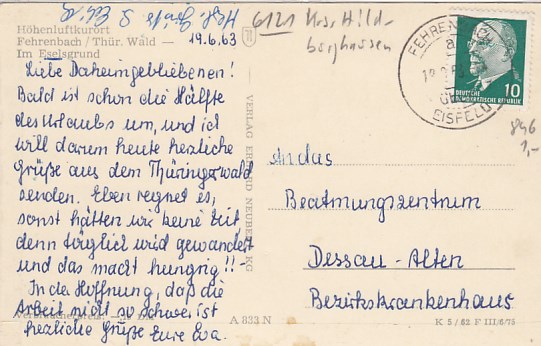 Höhenluftkurort
Fehrenbach / Thür. Wald —
Im Eselsgrund
19.6.63
6121 Krs. Hild-
burghausen
Liebe Daheimgebliebenen!
Bald ist schon die Hälfte
des Urlaubs um, und ich
will darum heute herzliche
Grüße aus dem Thüringerwald
senden. Eben regnet es,
sonst hätten wir keine Zeit,
denn täglich wird gewandert
und das macht hungrig!!-
In der Hoffnung, daß die
Arbeit nicht so schwer ist
herzliche Grüße Eure Eva.
A 833 N
VERLAG ERHARD NEUBERT KG
FEHRENBACH
EISFELD
DEUTSCHE
DEMOKRATISCHE REPUBLIK
10
846
1,-
An das
Beatmungszentrum
Dessau-Alten
Bezirkskrankenhaus
K 5/62 F III/6/75